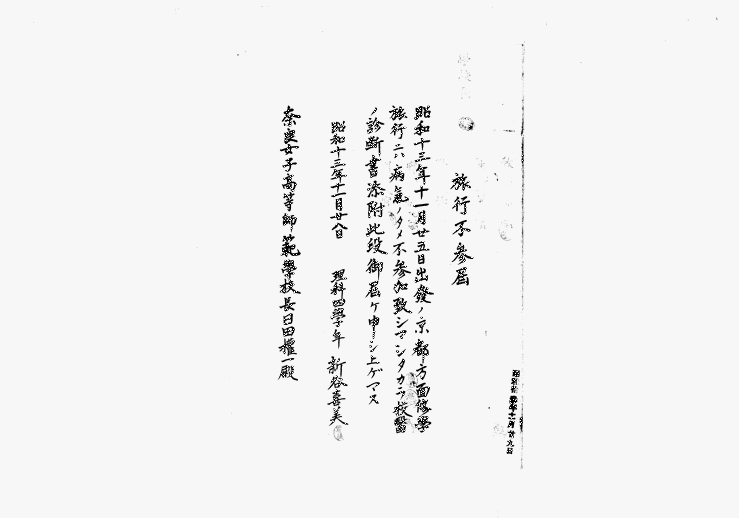 旅行不參屆
昭和十三年十一月廿五日出發ノ京都方面修學
旅行ニハ病氣ノタメ不參加致シマシタカラ校醫
ノ診斷書添附此段御屆ケ申シ上ゲマス
昭和十三年十一月廿八日 理科四學年 新谷喜美
奈良女子高等師範學校長日田權一殿